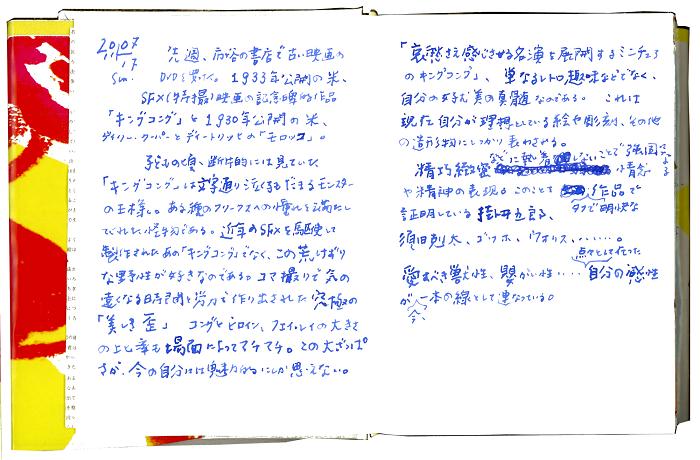 2007
11/17
Sun.
先週、市谷の書店で古い映画の
DVDを買った。1933年公開の米、
SFX(特撮)映画の記念碑的作品
「キングコング」と1930年公開の米、
ゲイリー・クーパーとディートリッヒの「モロッコ」。
子どもの頃、断片的には見ていた
「キングコング」は文字通り泣く子もだまるモンスター
の王様。ある種のフリークスへの憧れを満たし
てくれた怪物である。近年のSFXを駆使して
製作されたあの「キングコング」でなく、この荒けずり
な野性が好きなのである。コマ撮りで気の
遠くなる時間と労力で作り出された究極の
「美しき歪」 コングとヒロイン、フェイ・レイの大きさ
の比率も場面によってマチマチ。この大ざっぱ
さが、今の自分には魅力的にしか思えない。
「哀愁さえ感じさせる名演を展開するミニチュア
のキングコング」、単なるレトロ趣味などでなく、
自分の好む美の真髄なのである。これは
現在自分が理想としている絵や彫刻、その他
の造形物にしっかり表わされる。
精巧緻密などに執着しないことで強固になる情念
や精神の表現。このことを作品で
タフで明快な
証明している掛井五郎、
須田剋太、ゴッホ、ウォリス、……。
点々としていた
愛すべき獣性、嬰がい性…自分の感性
が今、一本の線として連なっている。